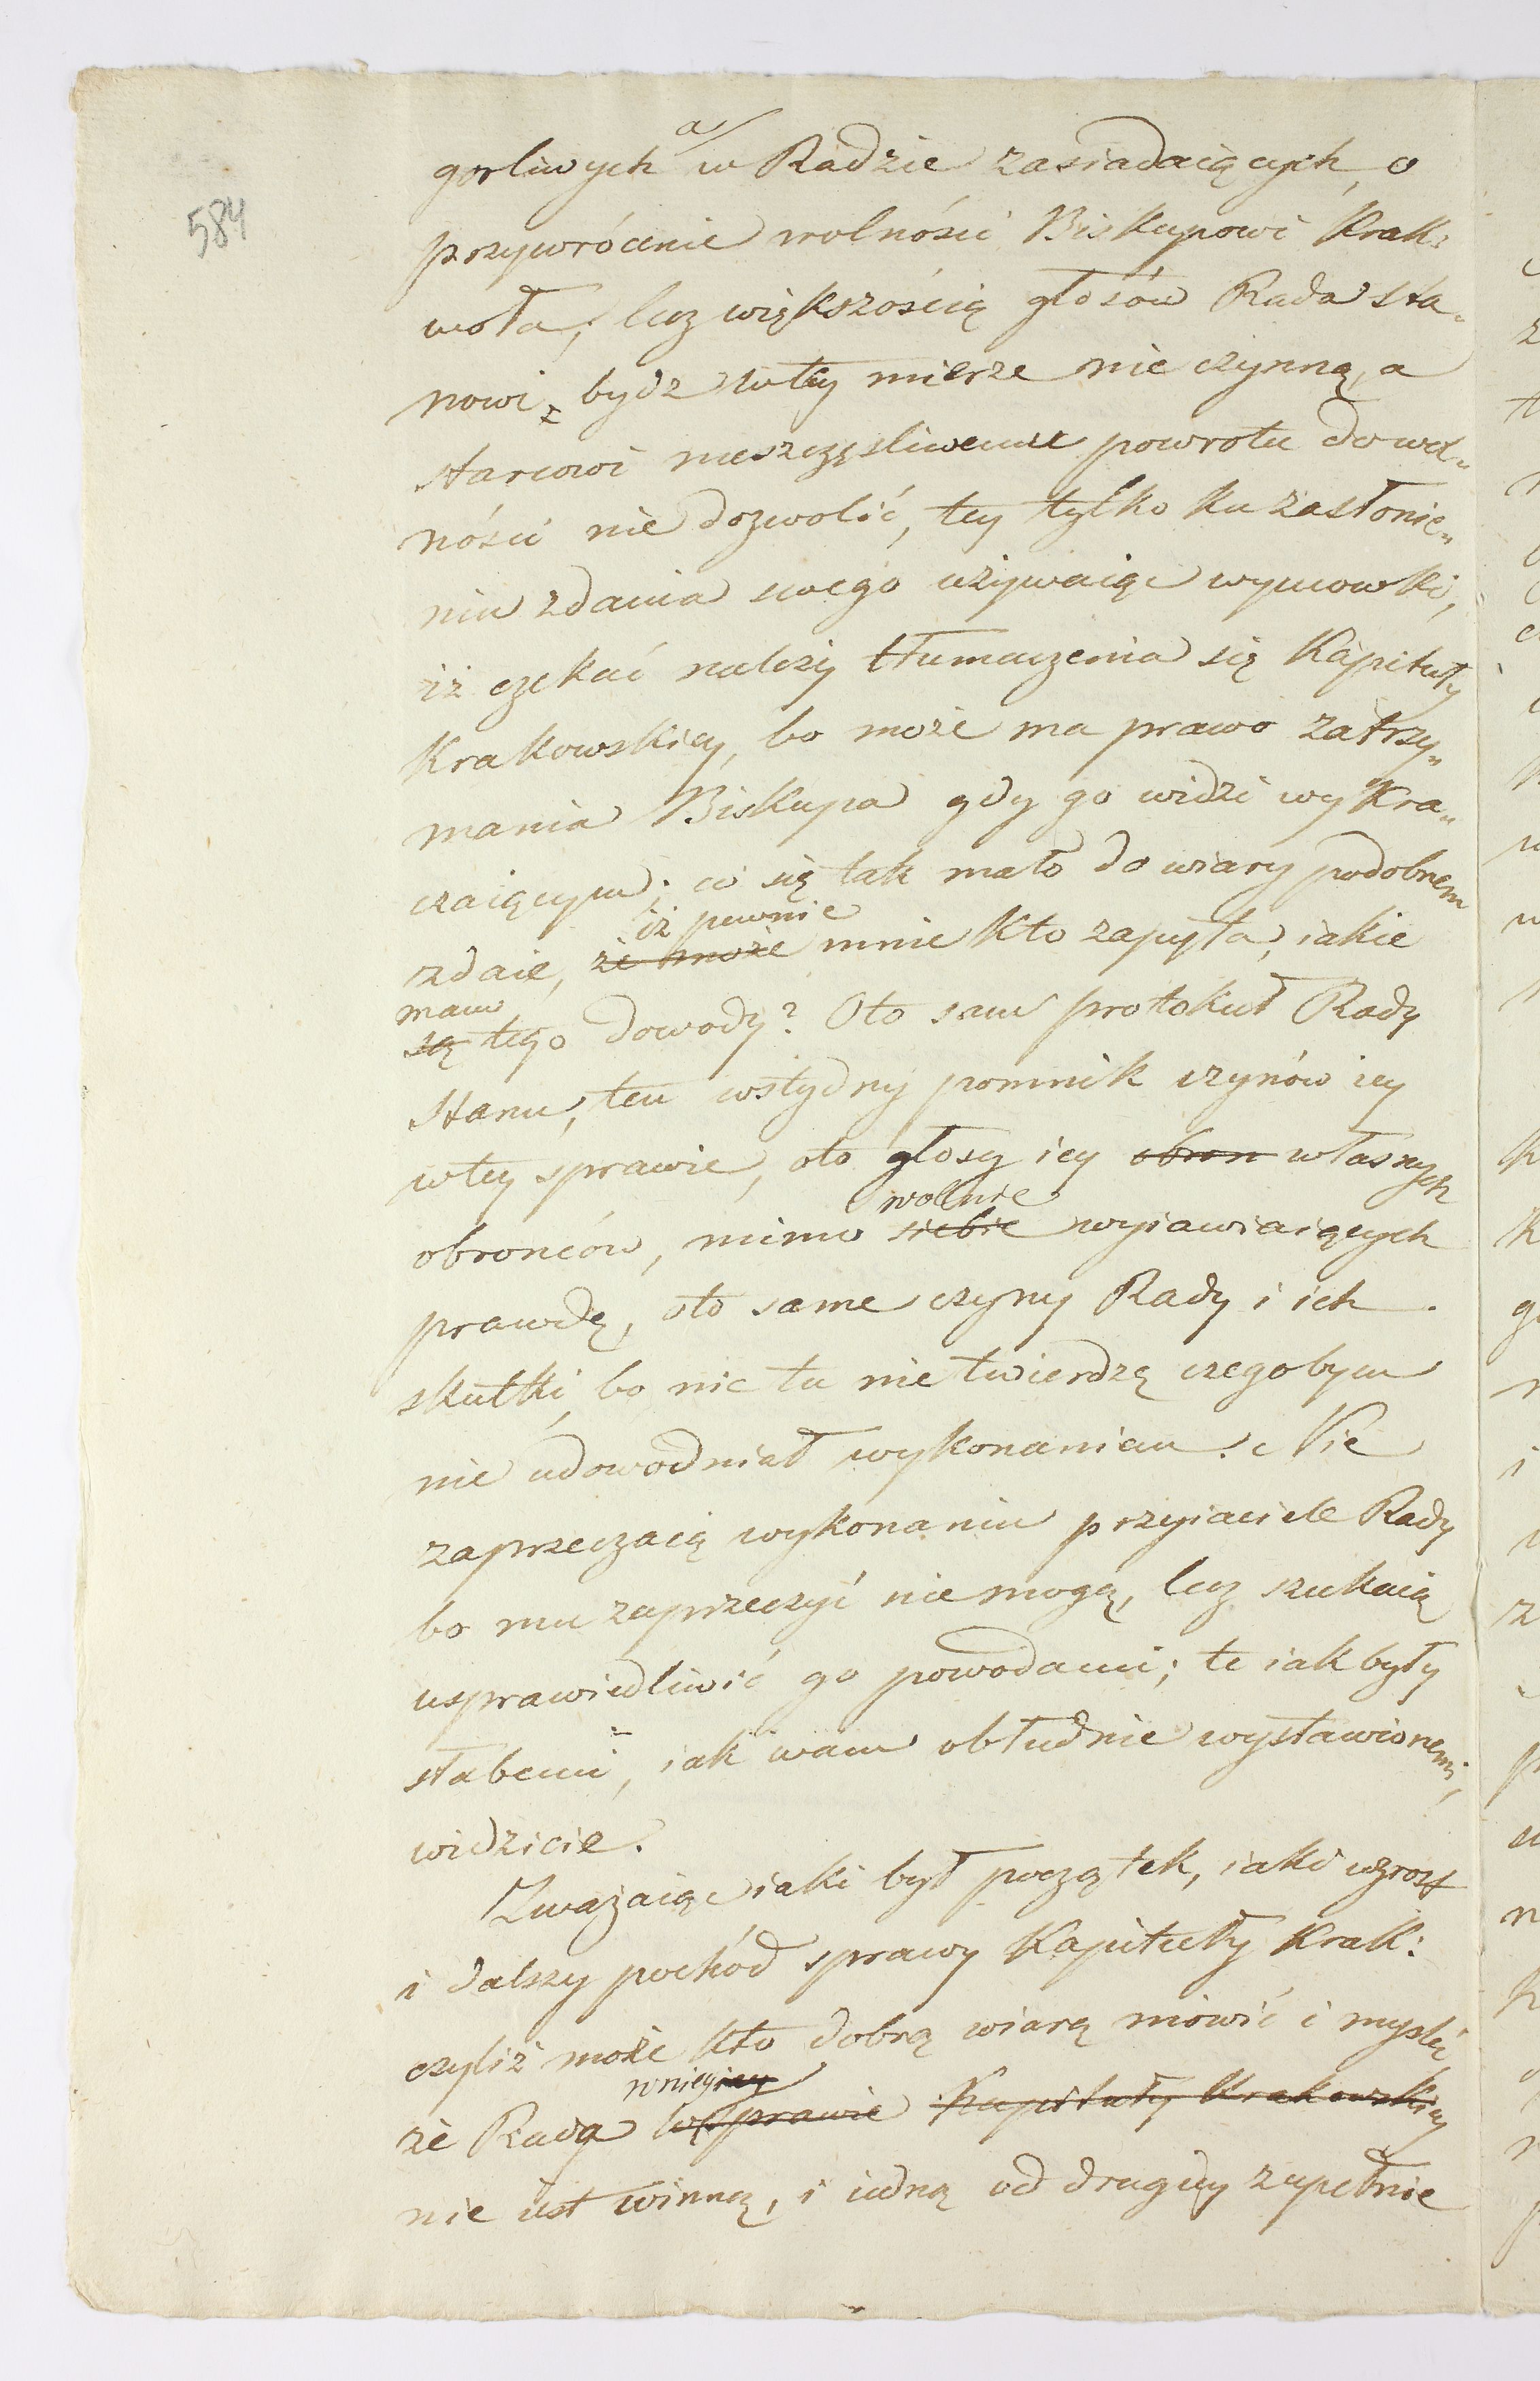 584
a
gorliwych w Radzie zasiadaiących, o
przywrócenie wolności Biskupowi Krak:
woła, lecz większością głosów Rada sta„
nowi, bydz wtey mierze nie czynną, a
starcowi nieszczęsliwemu powrotu do wol„
ności nie dozwolić, tey tylko ku zasłonie„
niu zdania swego używaiąc wymowki,
iż czekać należy tłumaczenia się Kapituły
Krakowskiey, bo może ma prawo zatrzy„
mania Biskupa gdy go widzi wykra„
czaiącym; co się tak mało do wiary podobnem
iż pewnie
zdaie, że może mnie kto zapyta, iakie
mam
są tego dowody? Oto sam protokuł Rady
Stanu, ten wstydny pomnik czynów iey
wtey sprawie, oto głosy iey obron własnych
wolnie
obronców, mimo siebie wyiawiaiących
prawdę, oto same czyny Rady i ich
skutki, bo nic tu nie twierdzę czegobym
nie udowodniał wykonaniem. Nie
zaprzeczaią wykonaniu przyiaciele Rady
bo mu zaprzeczyć nie mogą, lecz szukaią
usprawiedliwić go powodami; te iak były
słabemi, iak wam obłudnie wystawionemi,
widzicie.
Zważaiąc iaki był początek, iaki wzrost
i dalszy pochód sprawy Kapituły Krak:
czyliż może kto dobrą wiarą mówić i myslić,
wniey iey
że Rada wsprawie Kapituły Krakowskiey
nie iest winną, i iedną od drugiey zupełnie